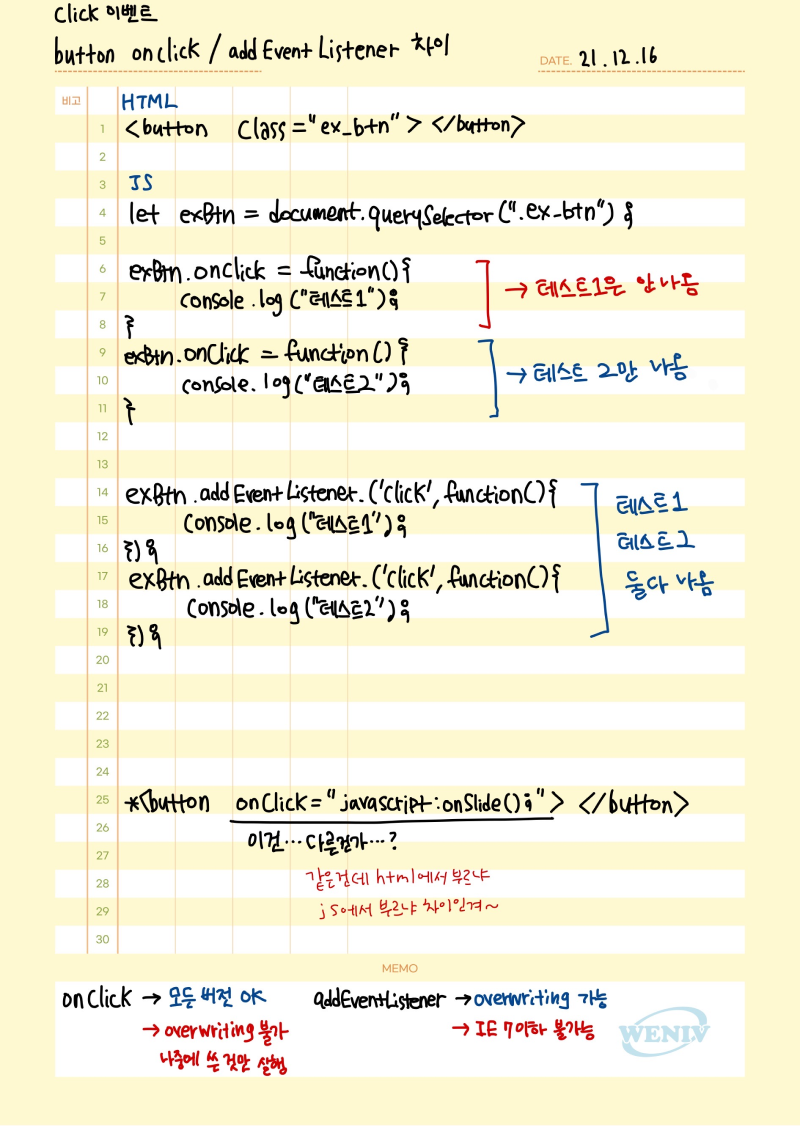 Click 이벤트
button onclick / addEventListener 차이
DATE. 21.12.16
비고
HTML
1 <button class="ex_btn"> </button>
2
3 JS
4 let exBtn = document.querySelector(".ex_btn");
5
6 exBtn.onclick = function(){
7 console.log("테스트1");
→ 테스트1은 안나옴
8 }
9 exBtn.onClick = function(){
10 console.log("테스트2");
→ 테스트 2만 나옴
11 }
12
13
14 exBtn.addEventListener.('click', function(){
테스트1
15 console.log("테스트1");
테스트2
16 });
17 exBtn.addEventListener.('click', function(){
둘다 나옴
18 console.log("테스트2");
19 });
20
21
22
23
24
25 *<button onClick="javascript:onSlide();"> </button>
26 이건...다른건가...?
27
28 같은건데 html에서 부르냐
29 js에서 부르냐 차이인겨~
30
MEMO
onClick → 모든 버전 OK
→ overwriting 불가
나중에 쓴 것만 실행
addEventListener → overwriting 가능
→ IE 7이하 불가능
WENIV